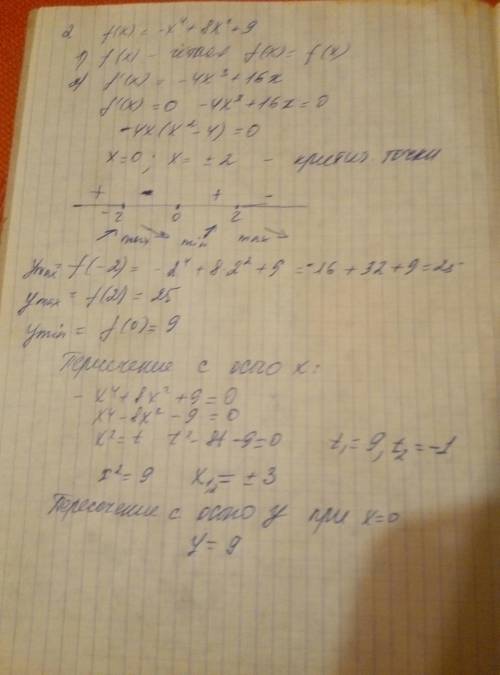 2. f(x) = -x⁴ + 8x² + 9
1) f(x) - четная f(x) = f(x)
2) f'(x) = -4x³ + 16x
f'(x) = 0 -4x³ + 16x = 0
-4x(x² - 4) = 0
x = 0; x = ±2 - критич точки
+ - + -
-2 0 2
↗ max ↘ min ↗ max ↘
f(-2) = -2⁴ + 8·2² + 9 = -16 + 32 + 9 = 25
y max = f(2) = 25
y min = f(0) = 9
Пересечение с осью x:
-x⁴ + 8x² + 9 = 0
x⁴ - 8x² - 9 = 0
x² = t t² - 8t - 9 = 0 t₁ = 9, t₂ = -1
x² = 9 x₁,₂ = ±3
Пересечение с осью y при x = 0
y = 9